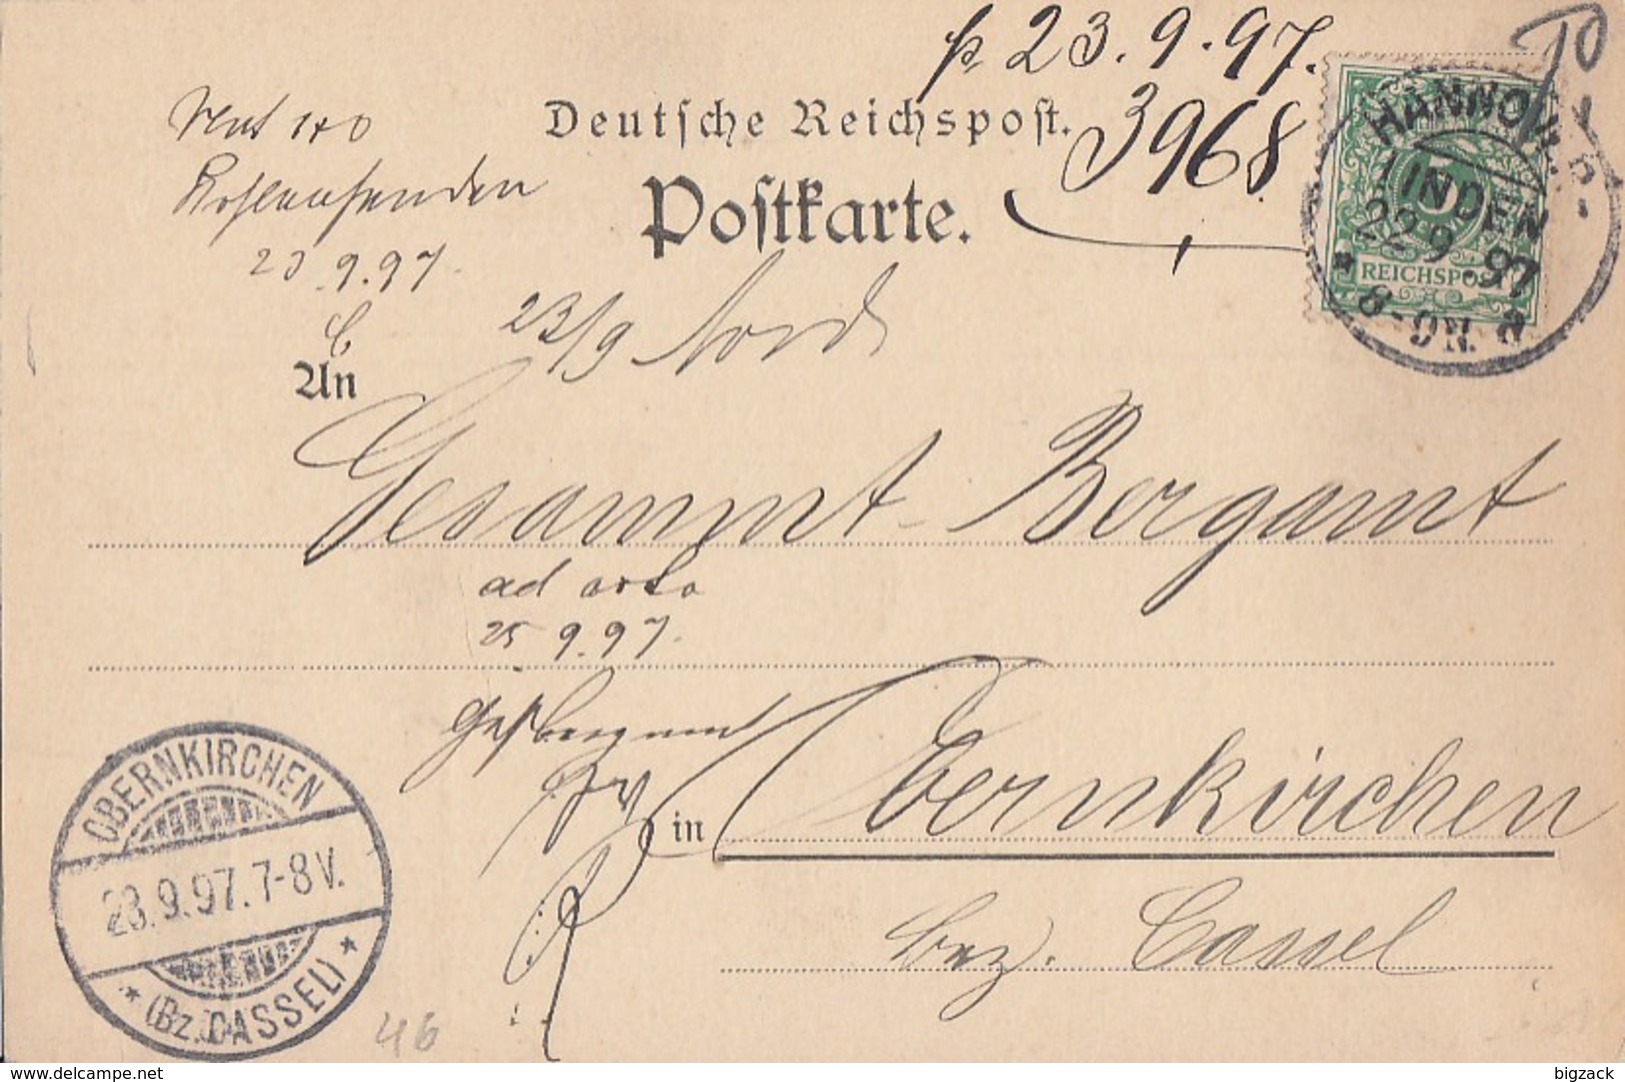 p. 23.9.97.
3968
Deutsche Reichspost.
Postkarte.
HANNOVER-
LINDEN
22.9.97
8-9N.
5
REICHSPOST
140
23.9.97.
23/9 Nord
An
Gesammt-Bergamt
ad acta
25 9.97.
in Obernkirchen
bez. Cassel
OBERNKIRCHEN
23.9.97.7-8V.
* (Bz. CASSEL) *
46
delcampe.net
bigzack